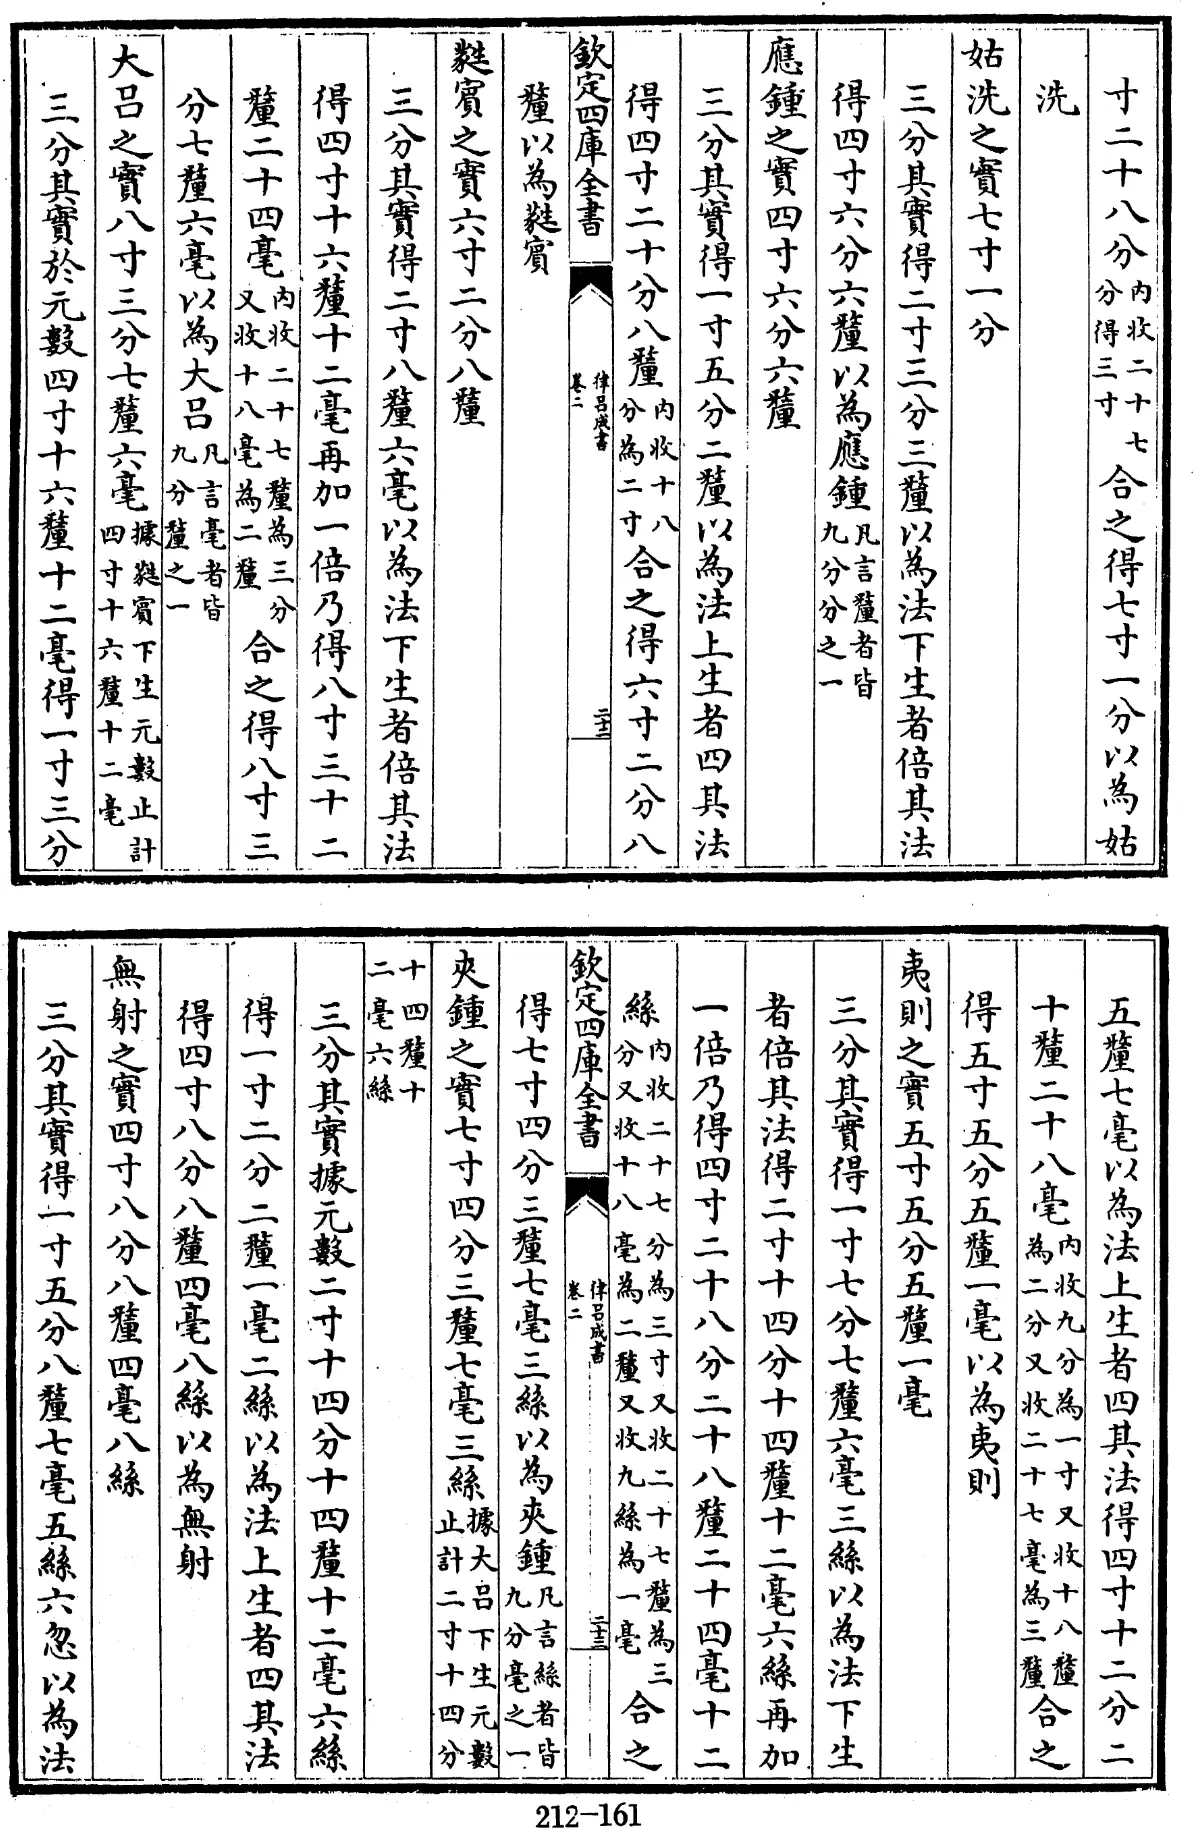 寸二十八分内收二十七分得三寸合之得七寸一分以為姑
洗
姑洗之實七寸一分
三分其實得二寸三分三釐以為法下生者倍其法
得四寸六分六釐以為應鍾凡言釐者皆九分分之一
應鍾之實四寸六分六釐
三分其實得一寸五分二釐以為法上生者四其法
得四寸二十分八釐内收十八分為二寸合之得六寸二分八
欽定四庫全書 律呂成書 卷二 二十二
釐以為蕤賓
蕤賓之實六寸二分八釐
三分其實得二寸八釐六毫以為法下生者倍其法
得四寸十六釐十二毫再加一倍乃得八寸三十二
釐二十四毫内收二十七釐為三分又收十八毫為二釐合之得八寸三
分七釐六毫以為大呂凡言毫者皆九分釐之一
大呂之實八寸三分七釐六毫據蕤賓下生元數止計四寸十六釐十二毫
三分其實於元數四寸十六釐十二毫得一寸三分
五釐七毫以為法上生者四其法得四寸十二分二
十釐二十八毫内收九分為一寸又收十八釐為二分又收二十七毫為三釐合之
得五寸五分五釐一毫以為夷則
夷則之實五寸五分五釐一毫
三分其實得一寸七分七釐六毫三絲以為法下生
者倍其法得二寸十四分十四釐十二毫六絲再加
一倍乃得四寸二十八分二十八釐二十四毫十二
絲内收二十七分為三寸又收二十七釐為三分又收十八毫為二釐又收九絲為一毫合之
欽定四庫全書 律呂成書 卷二 二十三
得七寸四分三釐七毫三絲以為夾鍾凡言絲者皆九分毫之一
夾鍾之實七寸四分三釐七毫三絲據大呂下生元數止計二寸十四分
十四釐十二毫六絲
三分其實據元數二寸十四分十四釐十二毫六絲
得一寸二分二釐一毫二絲以為法上生者四其法
得四寸八分八釐四毫八絲以為無射
無射之實四寸八分八釐四毫八絲
三分其實得一寸五分八釐七毫五絲六忽以為法
212-161